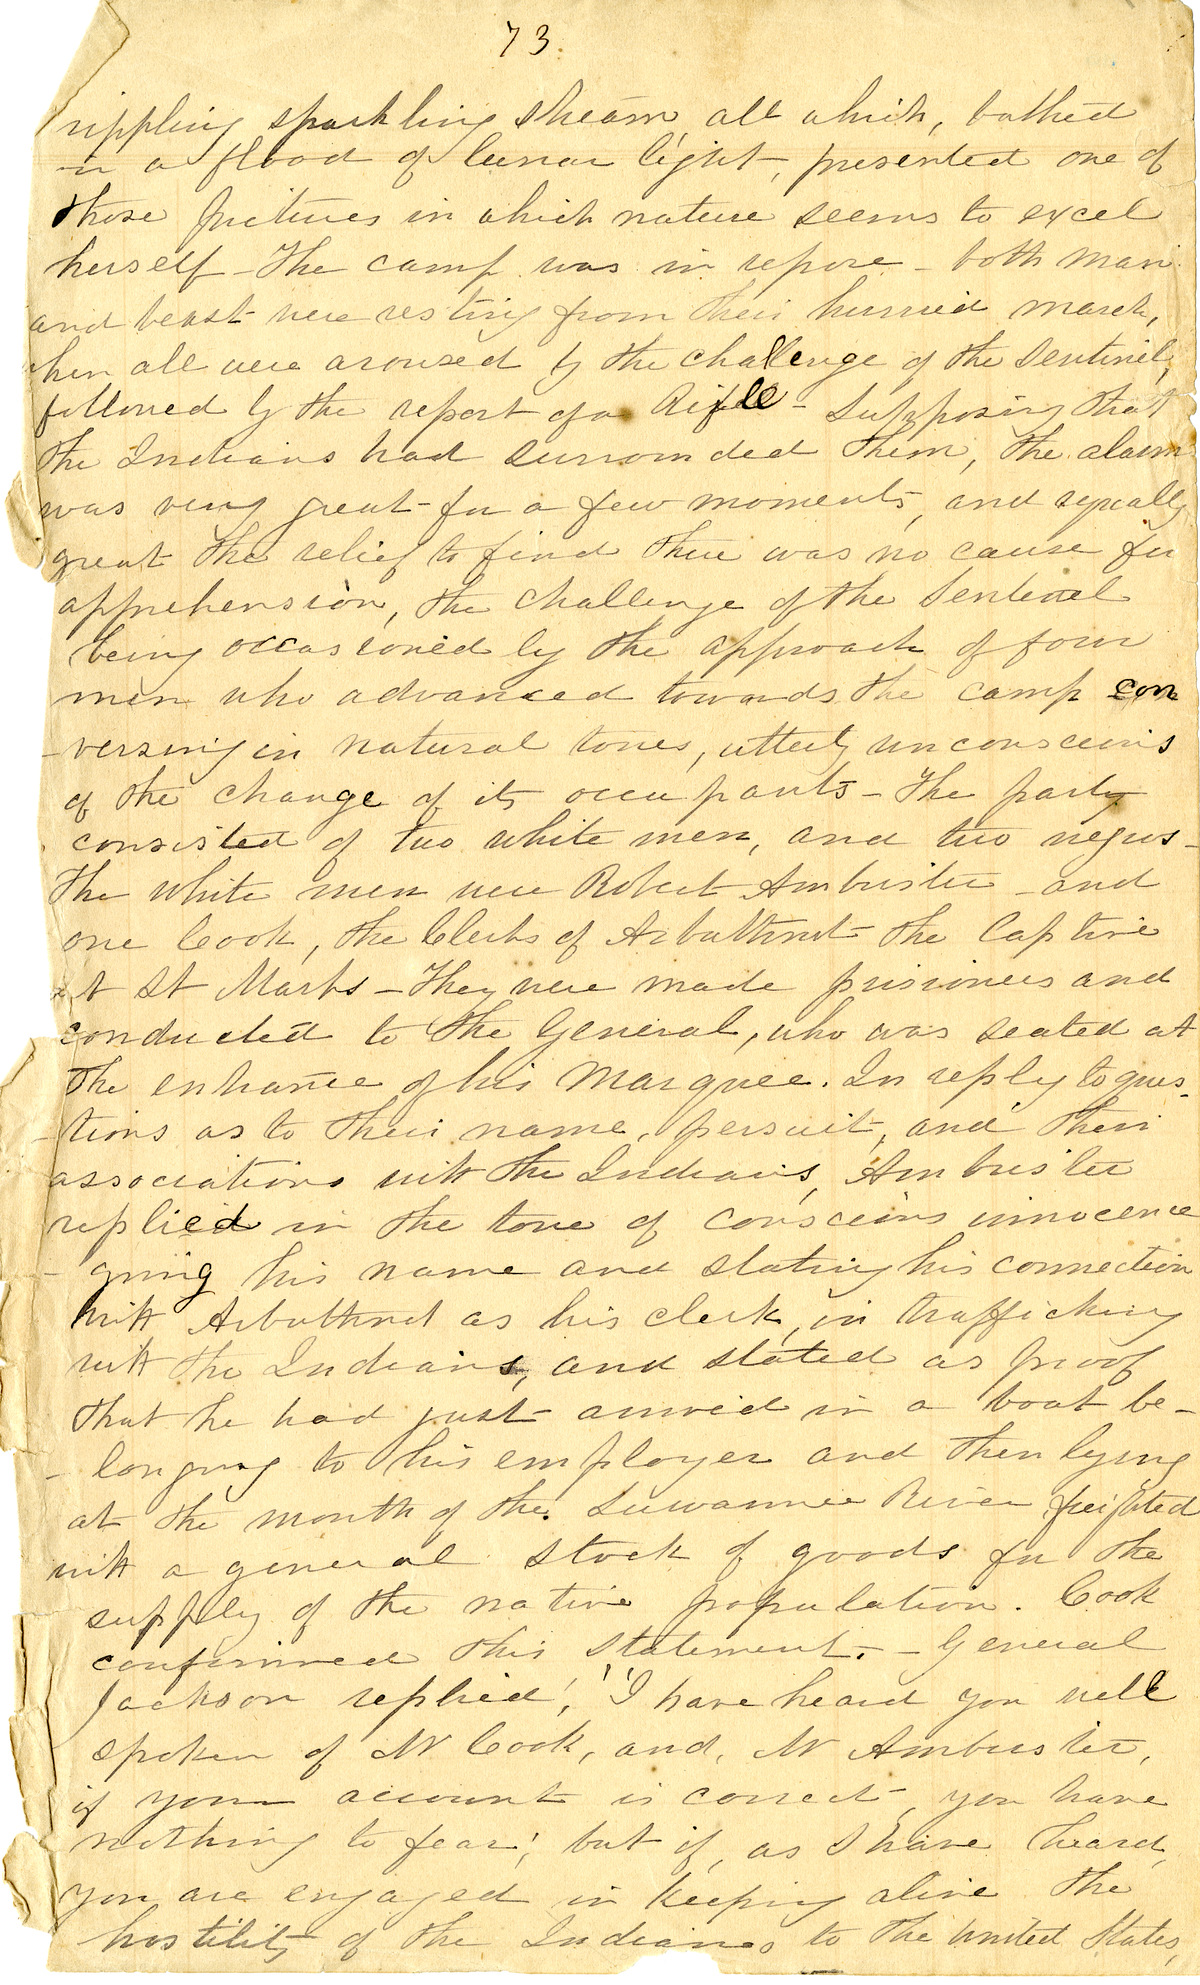 73.
rippling sparkling stream, all which, bathed
in a flood of lunar light, presented one of
those pictures in which nature seems to excel
herself - The camp was in repose - both man
and beast were resting from their hurried march,
when all were aroused by the challenge of the Sentinel,
followed by the report of a Rifle - Supposing that
the Indians had surrounded them, the alarm
was very great for a few moments, and equally
great the relief to find there was no cause for
apprehension, the challenge of the Sentinel
being occasioned by the approach of four
men who advanced towards the camp con
-versing in natural tones, utterly unconscious
of the change of its occupants - The party
consisted of two white men, and two negros -
The white men were Robert Ambrister - and
one Cook, the Clerks of Arbuthnot the Captive
at St Marks - They were made prisoners and
conducted to the General, who was seated at
the entrance of his Marquee. In reply to ques-
-tions as to their name, persuit, and their
associations with the Indians, Ambrister
replied in the tone of conscious innocence
giving his name and stating his connection
with Arbuthnot as his clerk, in trafficking
with the Indians, and stated as proof
that he had just arrived in a boat be-
-longing to his employer and then lying
at the mouth of the Suwannee River freighted
with a general stock of goods for the
supply of the native population. Cook
confirmed this statement. - General
Jackson replied, "I have heard you well
spoken of Mr Cook, and, Mr Ambrister,
if your account is correct, you have
nothing to fear; but if, as I have heard,
you are engaged in keeping alive the
hostility of the Indians to the United States,